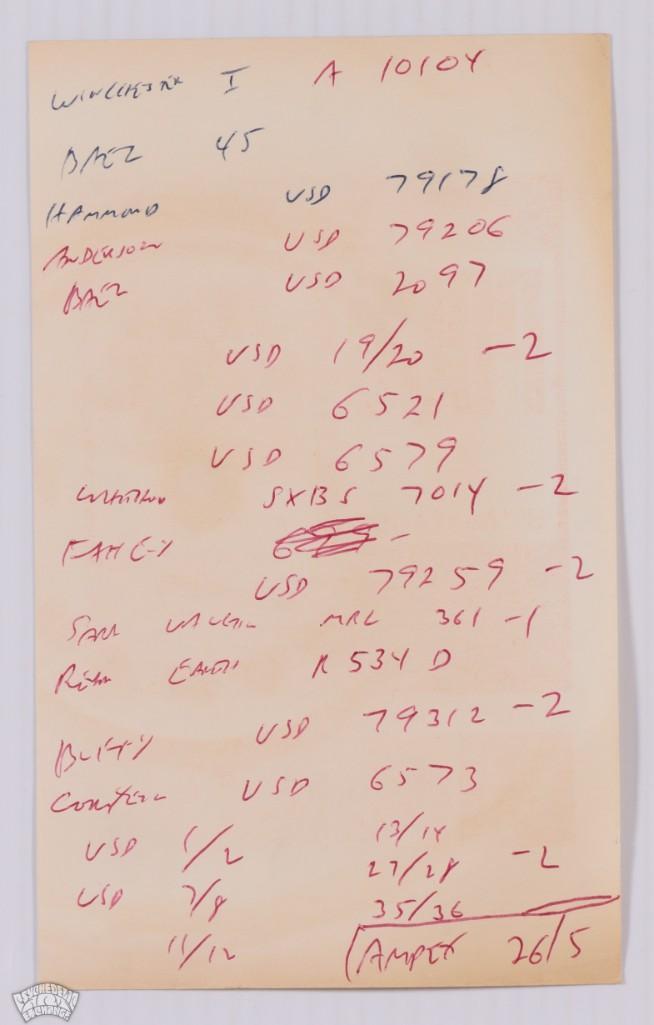 WINCHESTER I A 10104
BAEZ 45
HAMMOND USD 79178
ANDERSON USD 79206
BAEZ USD 2097
USD 19/20 -2
USD 6521
USD 6579
SXBS 7014 -2
FAHEY -
USD 79259 -2
SAM MRL 361 -1
RARE EARTH R 534 D
BUFFY USD 79312 -2
USD 6573
USD 1/2 13/14
27/28 -2
USD 7/8
35/36
11/12
AMPEX 26/5
PSYCHEDELIC
EXCHANGE